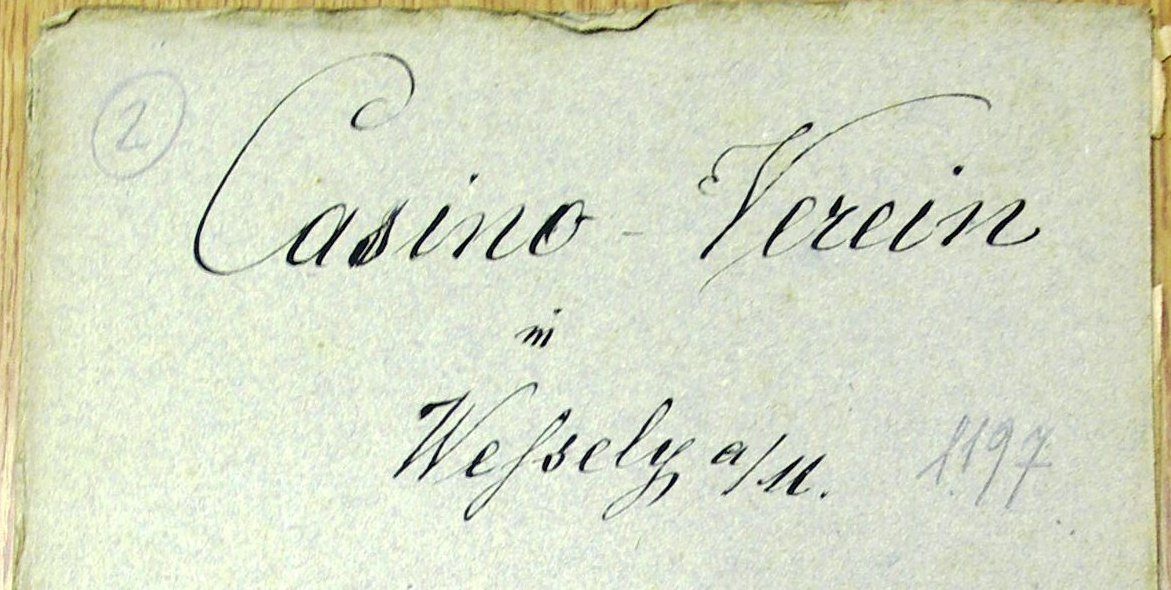 2
Casino-Verein
in
Wessely a/M.
1197